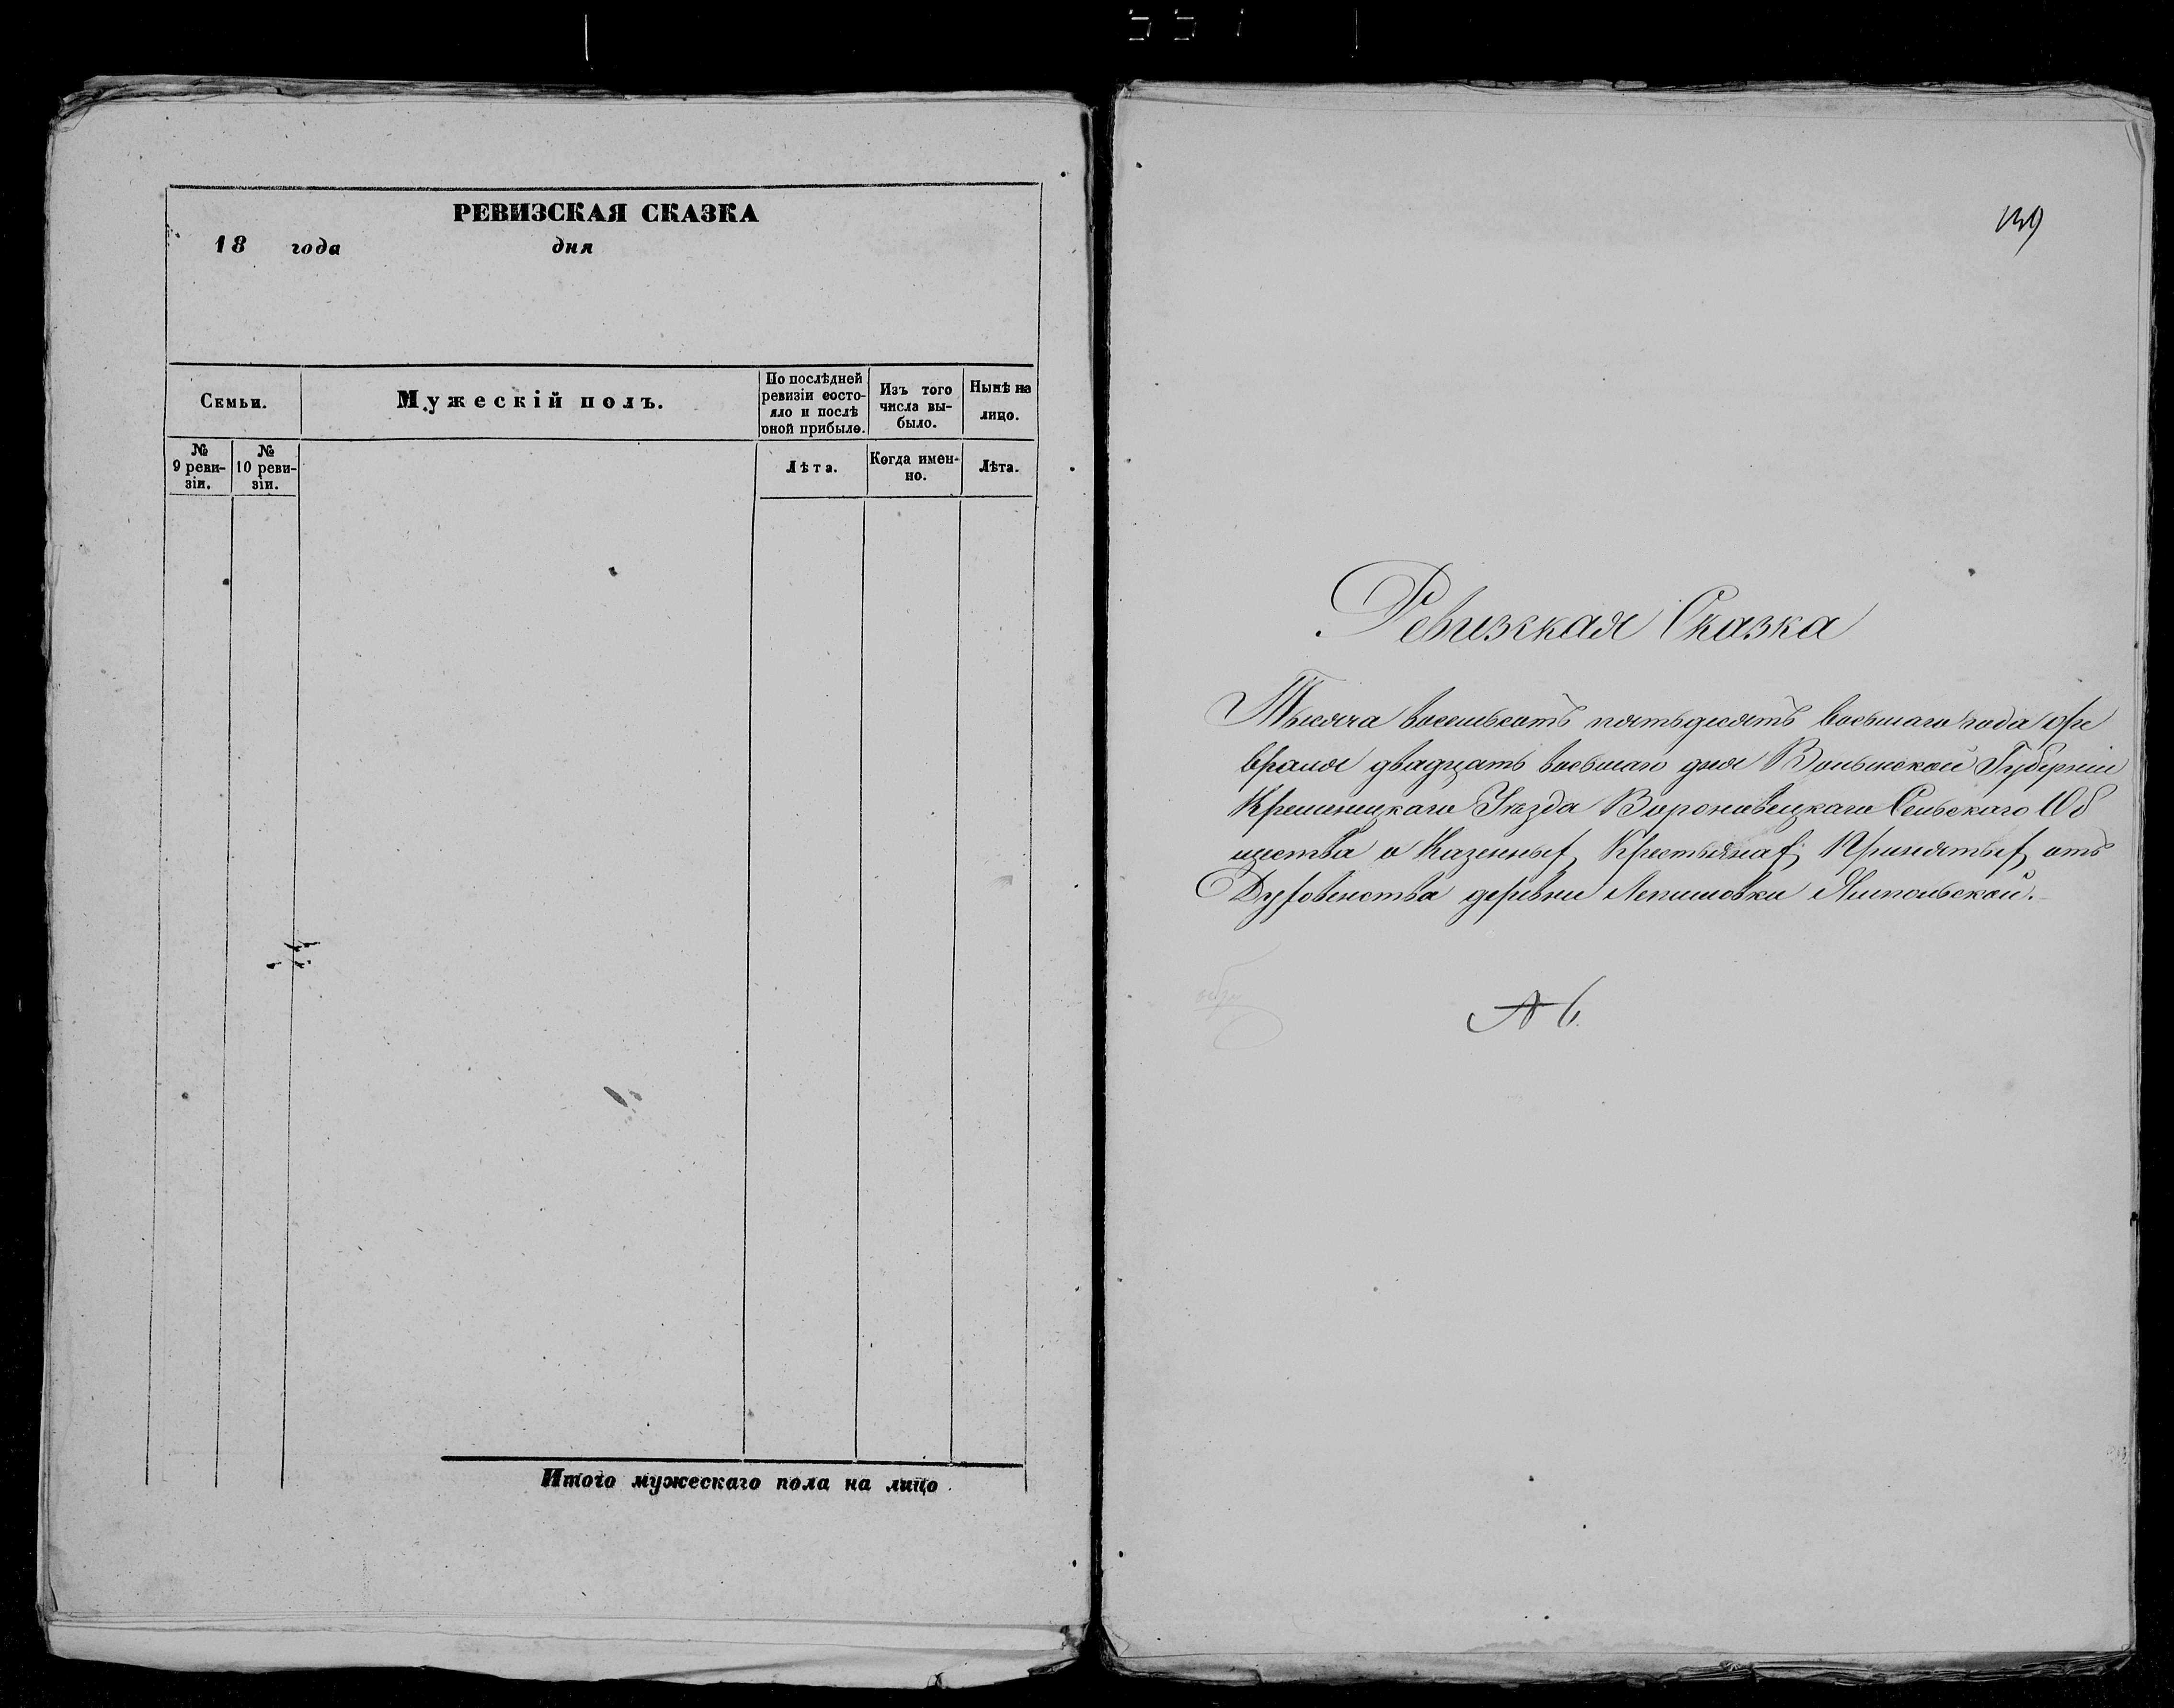 РЕВИЗСКАЯ СКАЗКА
18 года дня
Семьи.
Мужескій полъ.
По послѣдней
ревизіи состо-
яло и послѣ
оной прибыло.
Изъ того
числа вы-
было.
Нынѣ на
лицо.
№
9 реви-
зіи.
№
10 реви-
зіи.
Лѣта.
Когда имен-
но.
Лѣта.
Итого мужескаго пола на лицо
139
Ревизская Сказка
Тысяча восемьсотъ пятьдесятъ восьмаго года фе
враля двадцать восьмаго дня Волынской Губерніи
Кременецкаго Уѣзда Вороновецкаго Сельскаго Об
щества о Казенныхъ Крестьянахъ Принятыхъ отъ
Духовенства деревни Лепишовки Ямпольской.
№ 6.